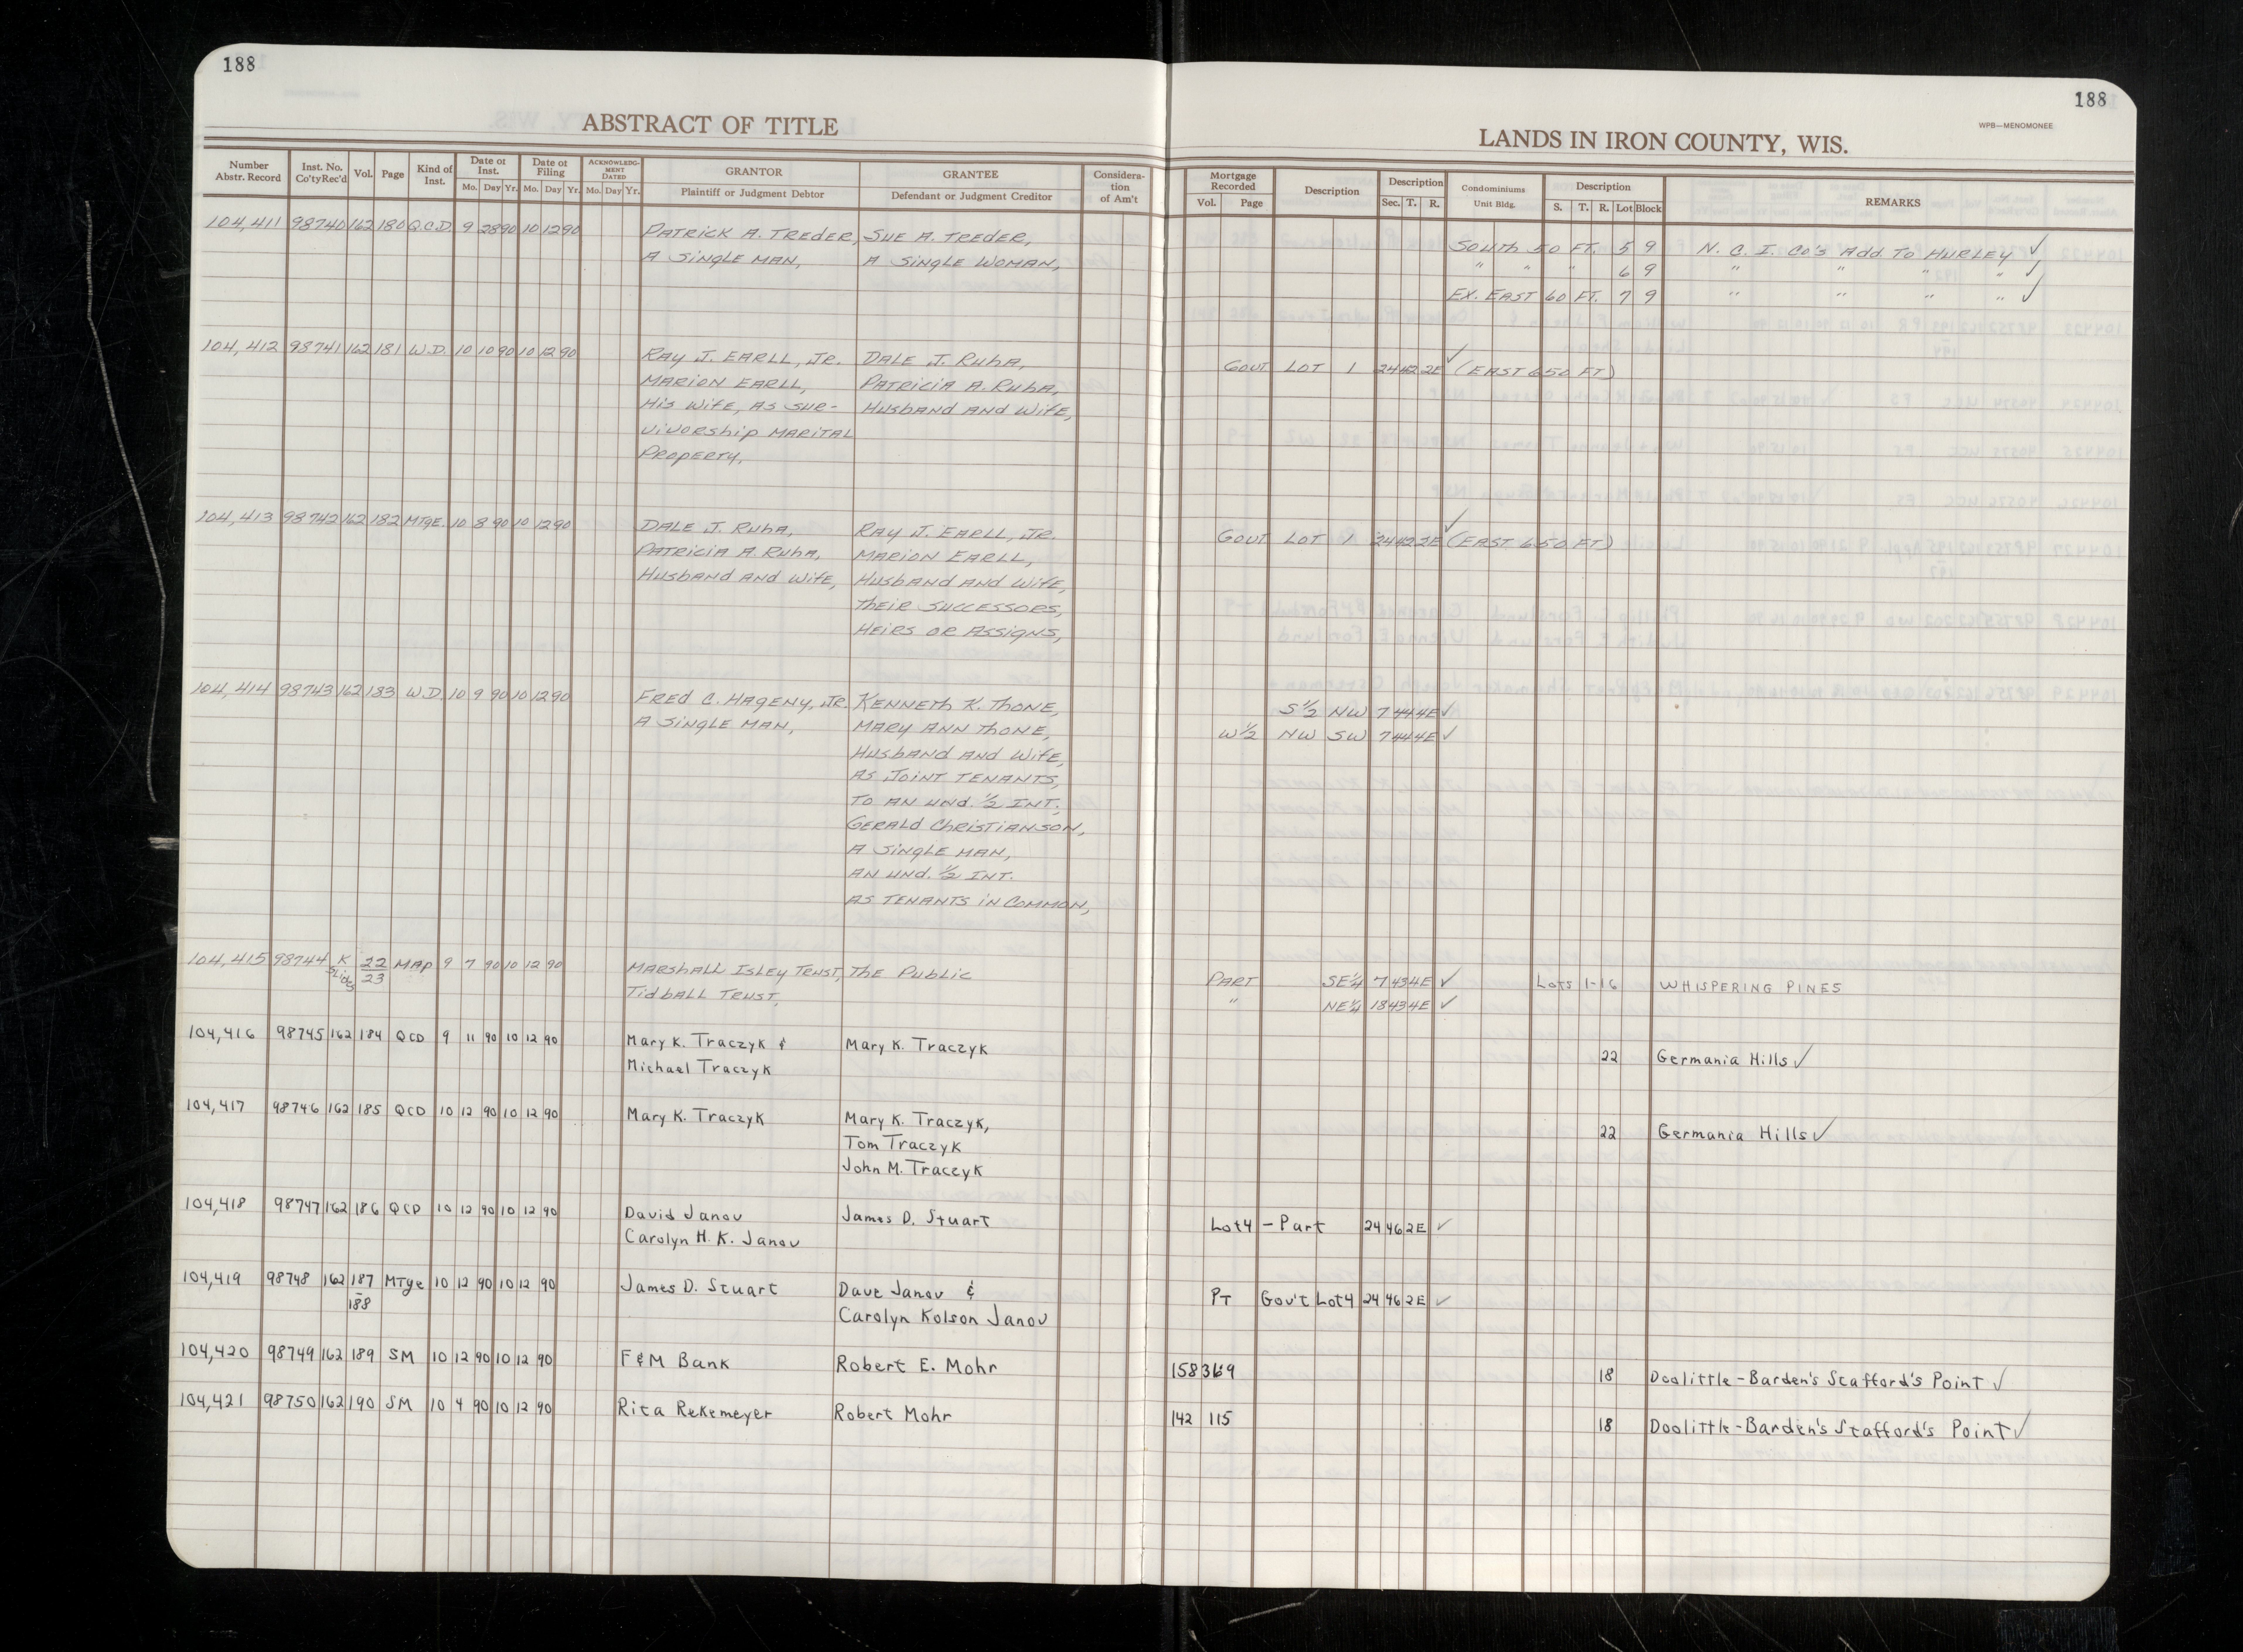 188
188
WPB—MENOMONEE
ABSTRACT OF TITLE
LANDS IN IRON COUNTY, WIS.
Number Abstr. Record | Inst. No. Co'ty Rec'd | Vol. | Page | Kind of Inst. | Date of Inst. Mo. Day Yr. | Date of Filing Mo. Day Yr. | ACKNOWLEDGMENT DATED Mo. Day Yr. | GRANTOR Plaintiff or Judgment Debtor | GRANTEE Defendant or Judgment Creditor | Consideration of Am't | Mortgage Recorded Vol. Page | Description | Description Sec. T. R. | Condominiums Unit Bldg. | Description S. T. R. Lot Block | REMARKS
104,411 98740 162 180 Q.C.D. 9 28 90 10 12 90 PATRICK A. TREDER, SUE A. TREDER, SOUTH 50 FT. 5 9 N. C. I. CO'S ADD. TO HURLEY ✓
A SINGLE MAN, A SINGLE WOMAN, " " " 6 9 " " " " ✓
EX. EAST 60 FT. 7 9 " " " " ✓
104,412 98741 162 181 W.D. 10 10 90 10 12 90 RAY J. EARLL, JR. DALE J. RUHA, GOVT LOT 1 24 42 2E ✓ (EAST 650 FT)
MARION EARLL, PATRICIA A. RUHA,
HIS WIFE, AS SUR- HUSBAND AND WIFE,
VIVORSHIP MARITAL
PROPERTY,
104,413 98742 162 182 MTGE. 10 8 90 10 12 90 DALE J. RUHA, RAY J. EARLL, JR. GOVT LOT 1 24 42 2E ✓ (EAST 650 FT)
PATRICIA A RUHA, MARION EARLL,
HUSBAND AND WIFE, HUSBAND AND WIFE,
THEIR SUCCESSORS,
HEIRS OR ASSIGNS,
104,414 98743 162 183 W.D. 10 9 90 10 12 90 FRED C. HAGENY, JR. KENNETH K. THONE, S½ NW 7 44 4E ✓
A SINGLE MAN, MARY ANN THONE, W½ NW SW 7 44 4E ✓
HUSBAND AND WIFE,
AS JOINT TENANTS,
TO AN UND. ½ INT.
GERALD CHRISTIANSON,
A SINGLE MAN,
AN UND. ½ INT.
AS TENANTS IN COMMON,
104,415 98744 K SLIDES 22/23 MAP 9 7 90 10 12 90 MARSHALL ISLEY TRUST, THE PUBLIC PART SE¼ 7 43 4E ✓ LOTS 1-16 WHISPERING PINES
TIDBALL TRUST, " NE¼ 18 43 4E ✓
104,416 98745 162 184 QCD 9 11 90 10 12 90 Mary K. Traczyk & Mary K. Traczyk 22 Germania Hills ✓
Michael Traczyk
104,417 98746 162 185 QCD 10 12 90 10 12 90 Mary K. Traczyk Mary K. Traczyk, 22 Germania Hills ✓
Tom Traczyk
John M. Traczyk
104,418 98747 162 186 QCD 10 12 90 10 12 90 David Janov James D. Stuart Lot 4 - Part 24 46 2E ✓
Carolyn H. K. Janov
104,419 98748 162 187 - 188 MTge 10 12 90 10 12 90 James D. Stuart Dave Janov & PT Gov't Lot 4 24 46 2E ✓
Carolyn Kolson Janov
104,420 98749 162 189 SM 10 12 90 10 12 90 F&M Bank Robert E. Mohr 158 369 18 Doolittle-Barden's Stafford's Point ✓
104,421 98750 162 190 SM 10 4 90 10 12 90 Rita Rekemeyer Robert Mohr 142 115 18 Doolittle-Barden's Stafford's Point ✓